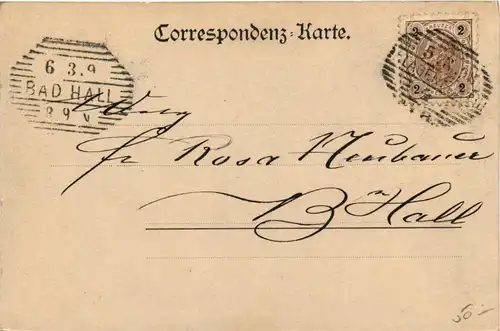 Correspondenz-Karte.
2 2
2 2
6 3.9
BAD HALL
8 9 V
Fr Rosa Neubauer
B Hall
50